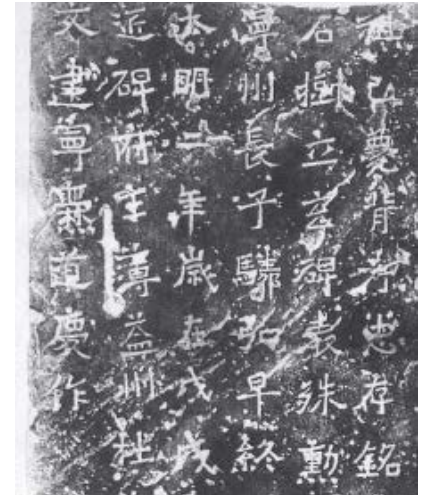 祖已薨背考志存銘
石樹立玄碑表殊勳
寧州長子驎弘早終
大明二年歲在戊戌
匠碑府主簿益州杜
文建寧爨道慶作